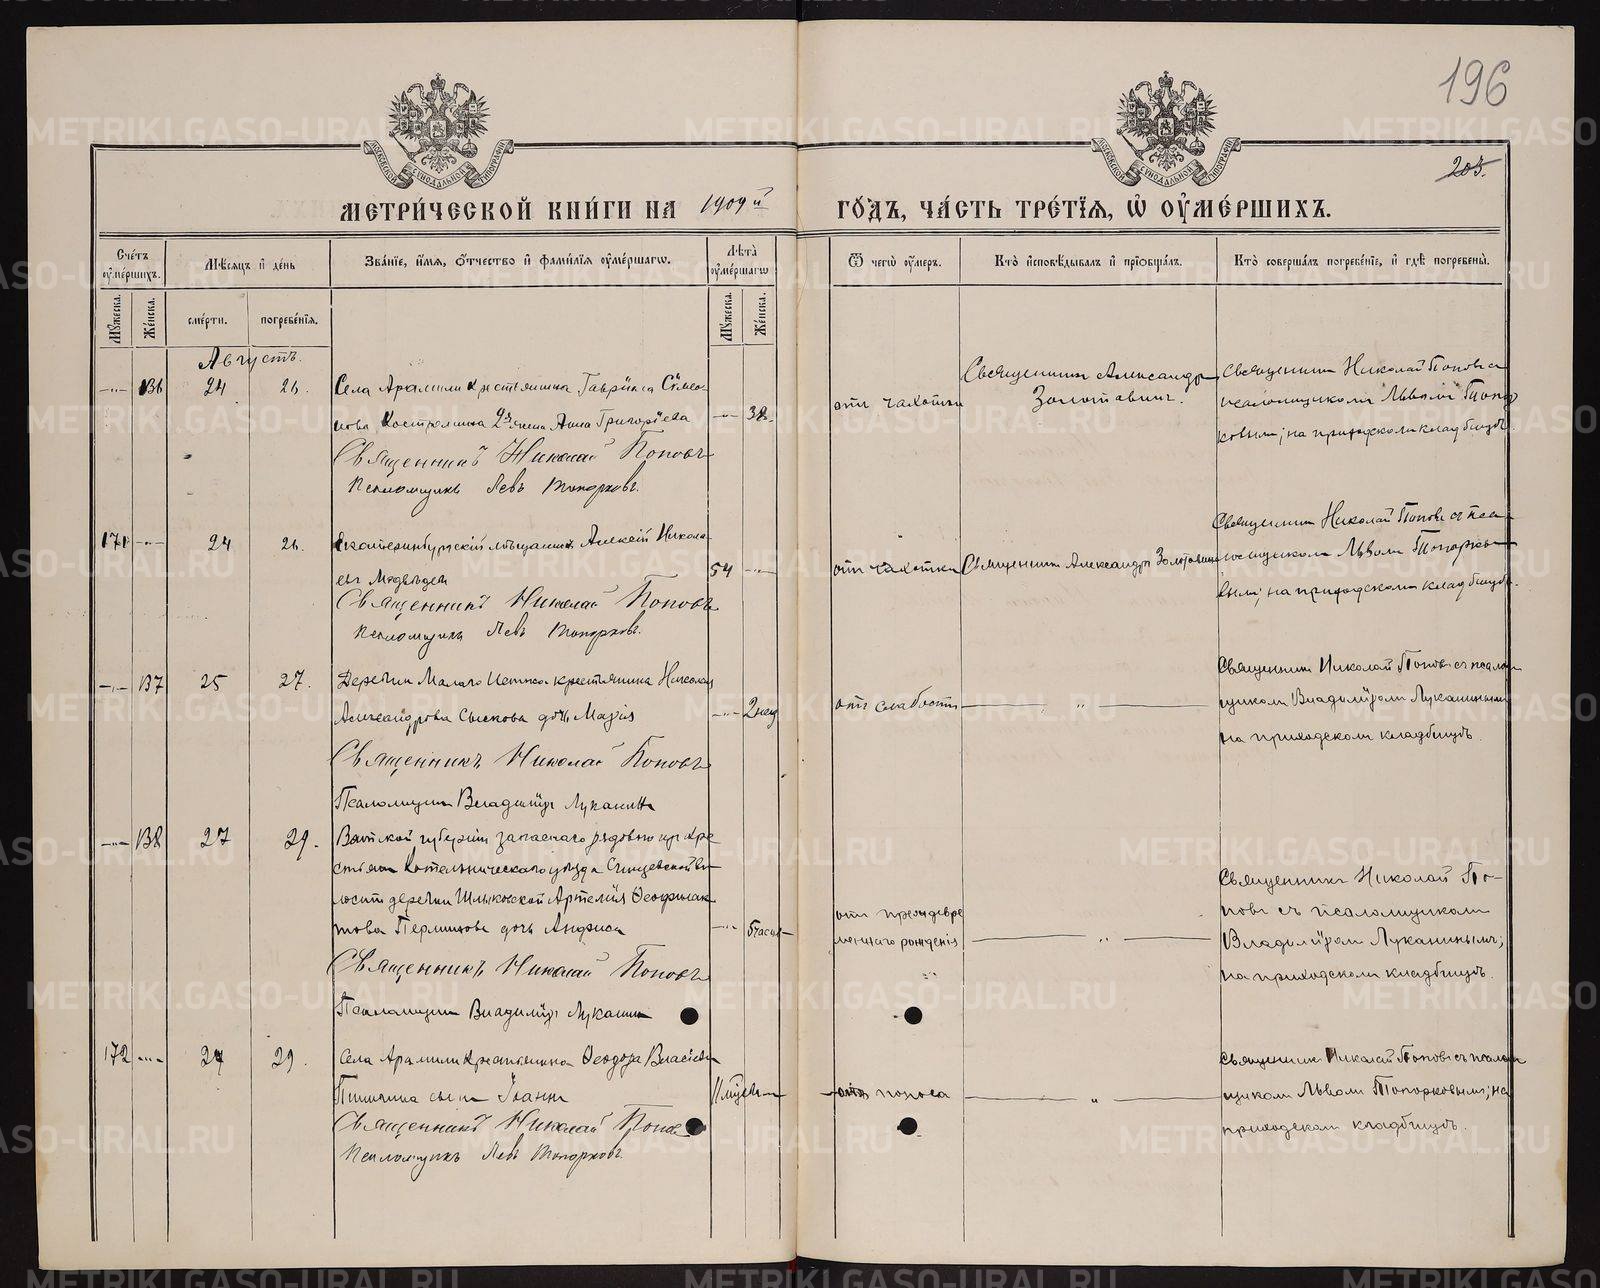 196
205.
МЕТРИ́ЧЕСКОЙ КНИ́ГИ НА 1909й ГО́ДЪ, ЧА́СТЬ ТРЕ́ТЇЯ, Ѡ҆ ОУ҆МЕ́РШИХЪ.
Сче́тъ оу҆ме́ршихъ.
Мѣ́сяцъ и҆ де́нь
Зва́нїе, и҆́мя, о҆́тчество и҆ фами́лїя оу҆ме́ршагѡ.
Лѣ́та оу҆ме́ршагѡ
Ѿ чегѡ̀ оу҆́меръ.
Кто̀ и҆сповѣ́дывалъ и҆ прїѡбща́лъ.
Кто̀ соверша́лъ погребе́нїе, и҆ гдѣ̀ погребены̀.
Мꙋ́жеска. Же́нска. сме́рти. погребе́нїя. Мꙋ́жеска. Же́нска.
Августъ.
136 24 26. Села Арамили крестьянина Гаврiила Симео-
нова Костромина жена Анна Григорiева 38.
Священникъ Николай Поповъ
Псаломщикъ Левъ Топорковъ.
отъ чахотки
Священникъ Александръ
Золотавинъ.
Священникъ Николай Поповъ съ
псаломщикомъ Львомъ Топор
ковымъ; на приходскомъ кладбищѣ.
171 24 26. Екатеринбургскiй мѣщанинъ Алексѣй Никола-
евъ Медвѣдев 54
Священникъ Николай Поповъ
Псаломщикъ Левъ Топорковъ.
отъ чахотки Священникъ Александръ Золотавинъ
Священникъ Николай Поповъ съ пса-
ломщикомъ Львомъ Топорко-
вымъ; на приходскомъ кладбищѣ.
137 25 27. Деревни Малаго Истока крестьянина Николая
Александрова Сыскова дочь Марiя 2 нед
Священникъ Николай Поповъ
Псаломщикъ Владимiръ Луканинъ
отъ слабости „
Священникъ Николай Поповъ съ псалом
щикомъ Владимiромъ Луканинымъ
на приходскомъ кладбищѣ.
138 27 29. Вятской губернiи запаснаго рядового изъ кре
стьянъ Котельническаго уѣзда волости деревни Артемiя Ѳеофилак
това Перминова дочь Анфиса 5 часов
Священникъ Николай Поповъ
Псаломщикъ Владимiръ Луканинъ
отъ преждевре
меннаго рожденiя „
Священникъ Николай По-
повъ съ псаломщикомъ
Владимiромъ Луканинымъ;
на приходскомъ кладбищѣ.
172 27 29. Села Арамили крестьянина Ѳеодора Власiева
сынъ Iоаннъ 11 мѣсяц
Священникъ Николай Попов
Псаломщикъ Левъ Топорковъ.
отъ поноса „
Священникъ Николай Поповъ съ псалом
щикомъ Львомъ Топорковымъ; на
приходскомъ кладбищѣ.
METRIKI.GASO-URAL.RU